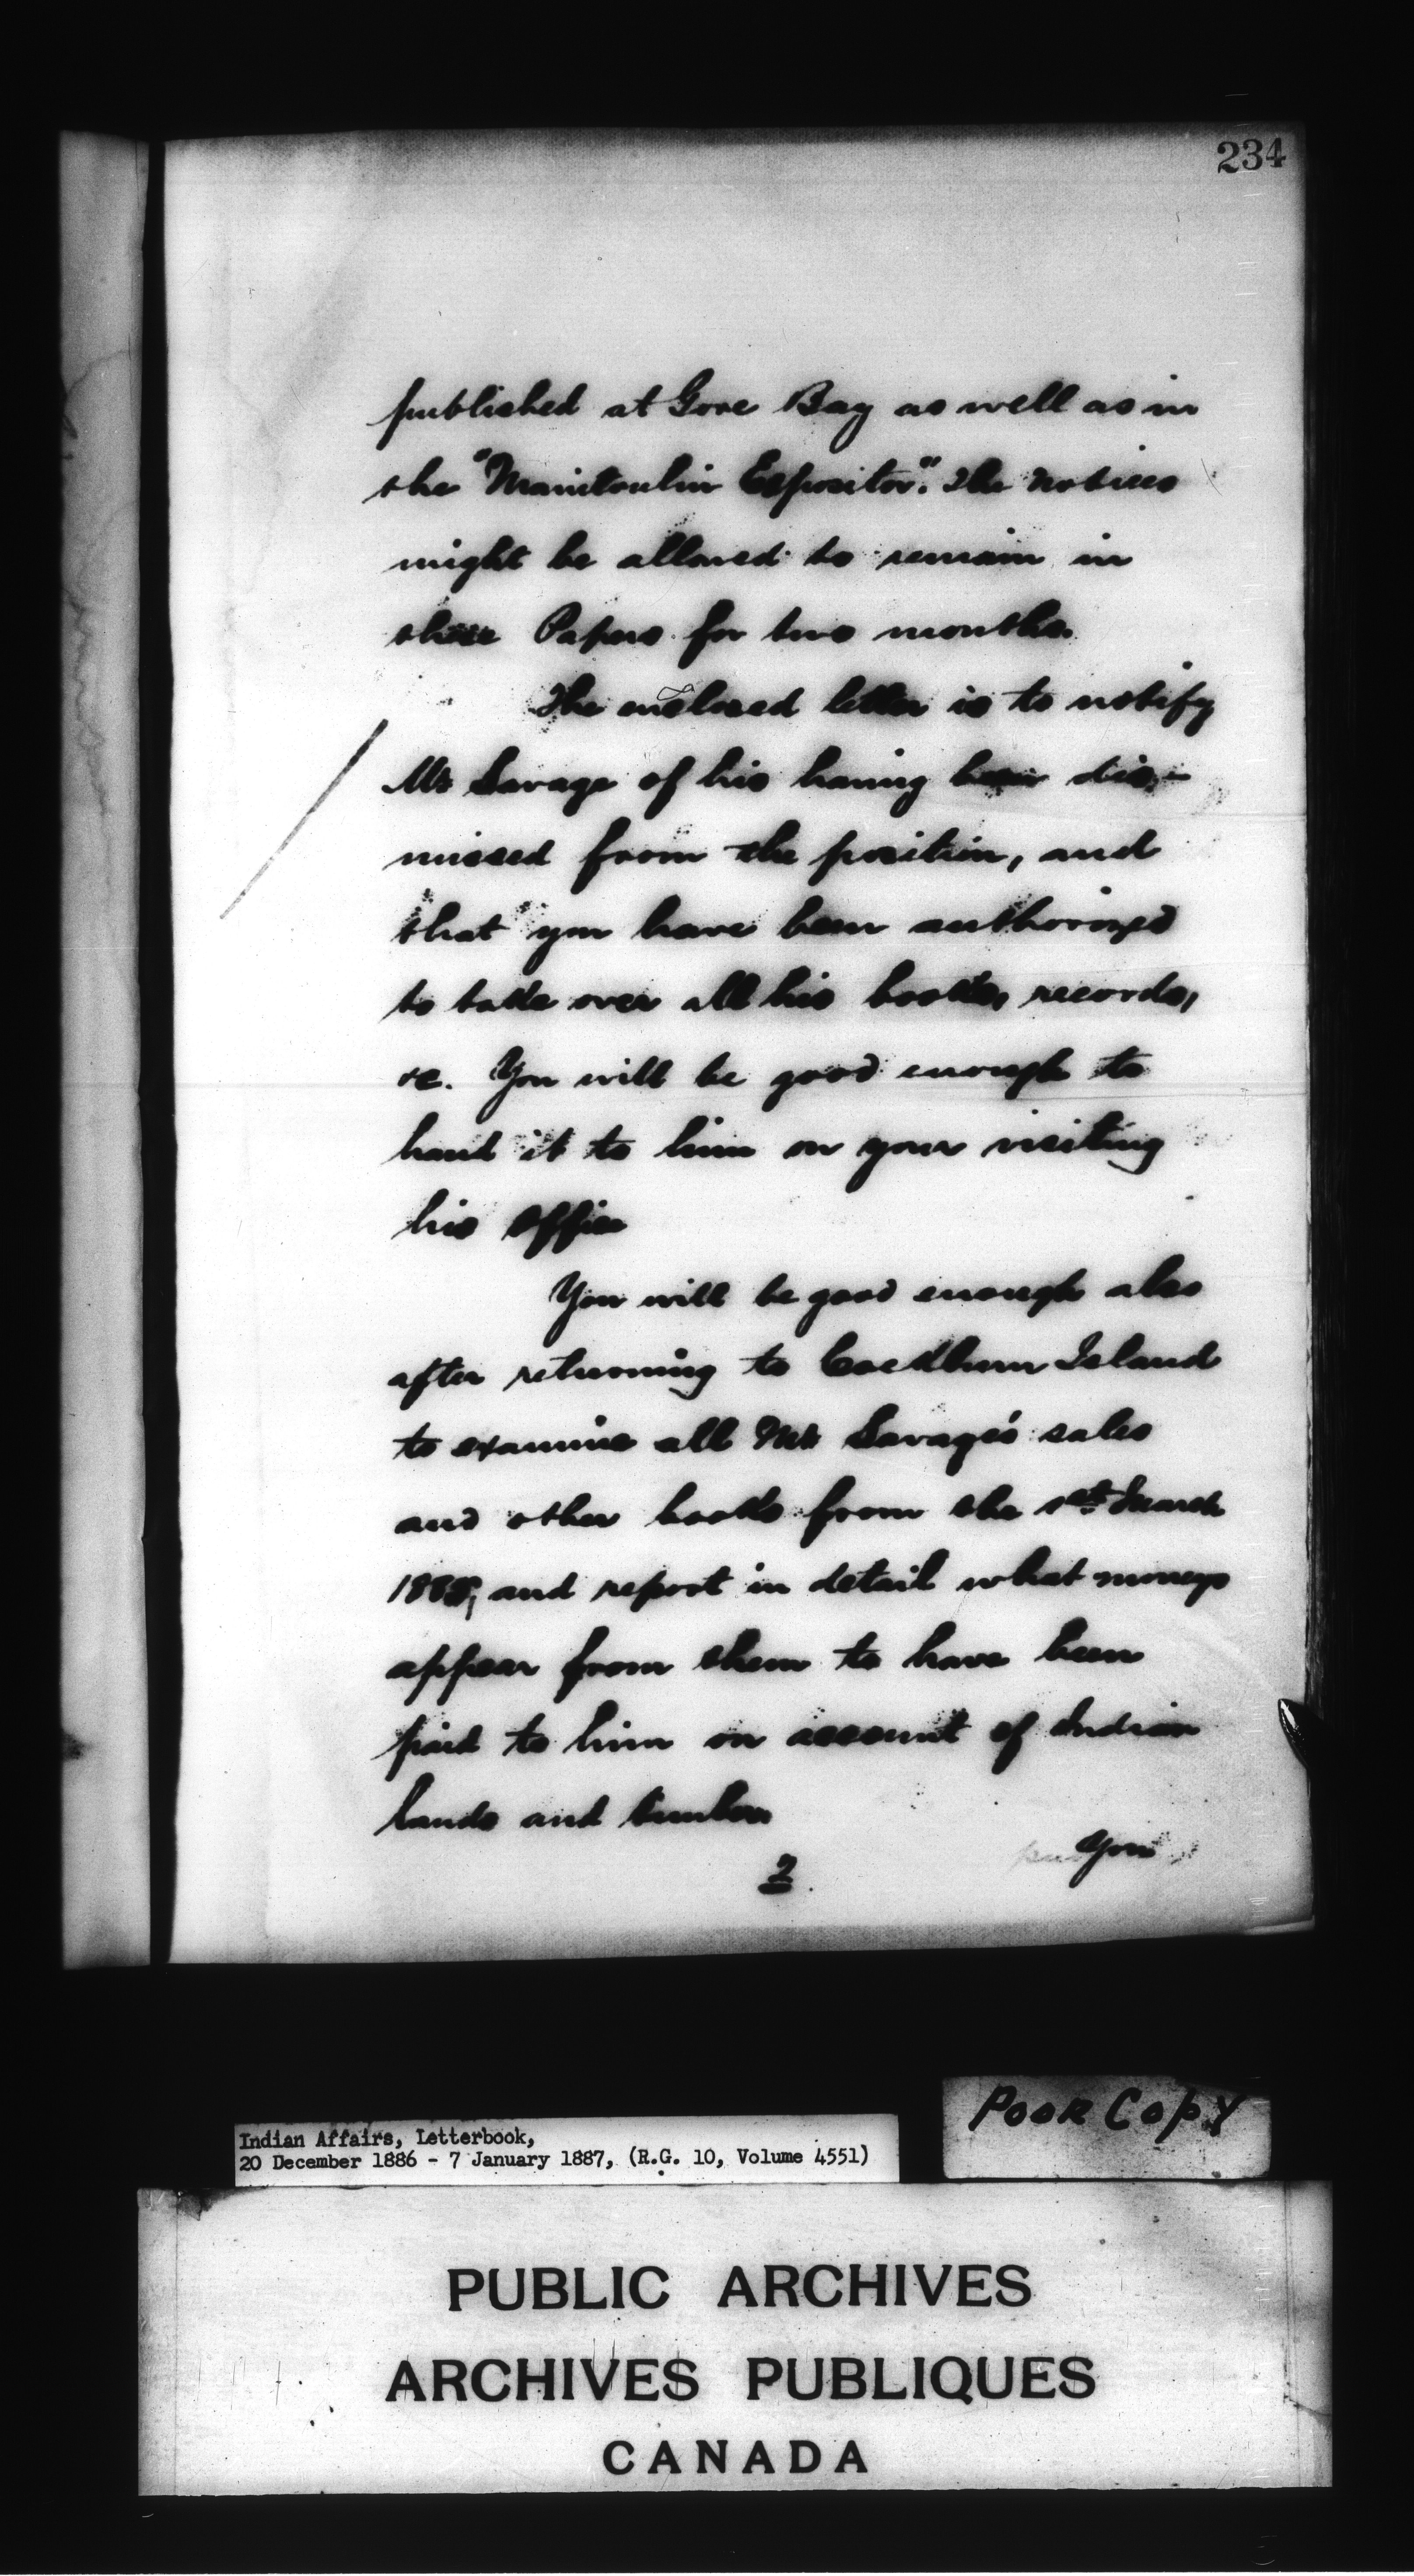 234
published at Gore Bay as well as in
the "Manitoulin Expositor". The notices
might be allowed to remain in
these Papers for two months.
The enclosed letter is to notify
Mr Savage of his having been dis-
missed from the position, and
that you have been authorized
to take over all his books, records,
&c. You will be good enough to
hand it to him on your visiting
his office
You will be good enough also
after returning to Cockburn Island
to examine all Mr Savage's sales
and other books from the 1st
and report in detail what moneys
appear from them to have been
paid to him on account of Indian
lands and timber
You
2
POOR COPY
Indian Affairs, Letterbook,
20 December 1886 - 7 January 1887, (R.G. 10, Volume 4551)
PUBLIC ARCHIVES
ARCHIVES PUBLIQUES
CANADA